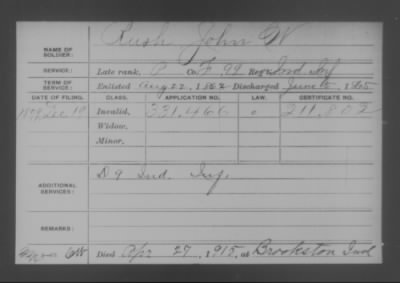 NAME OF SOLDIER: Rush John W
SERVICE: Late rank, P Co. F, 99 Reg't Ind Inf
TERM OF SERVICE: Enlisted Aug 22, 1862 Discharged June 5, 1865
DATE OF FILING. CLASS. APPLICATION NO. LAW. CERTIFICATE NO.
1879 Dec 19 Invalid, 331.466 211.802
Widow,
Minor,
ADDITIONAL SERVICES: D 9 Ind. Inf.
REMARKS:
Died Apr 27, 1915, at Brookston Ind